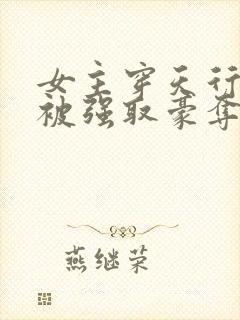 女主穿天行
被强取豪夺
燕继荣